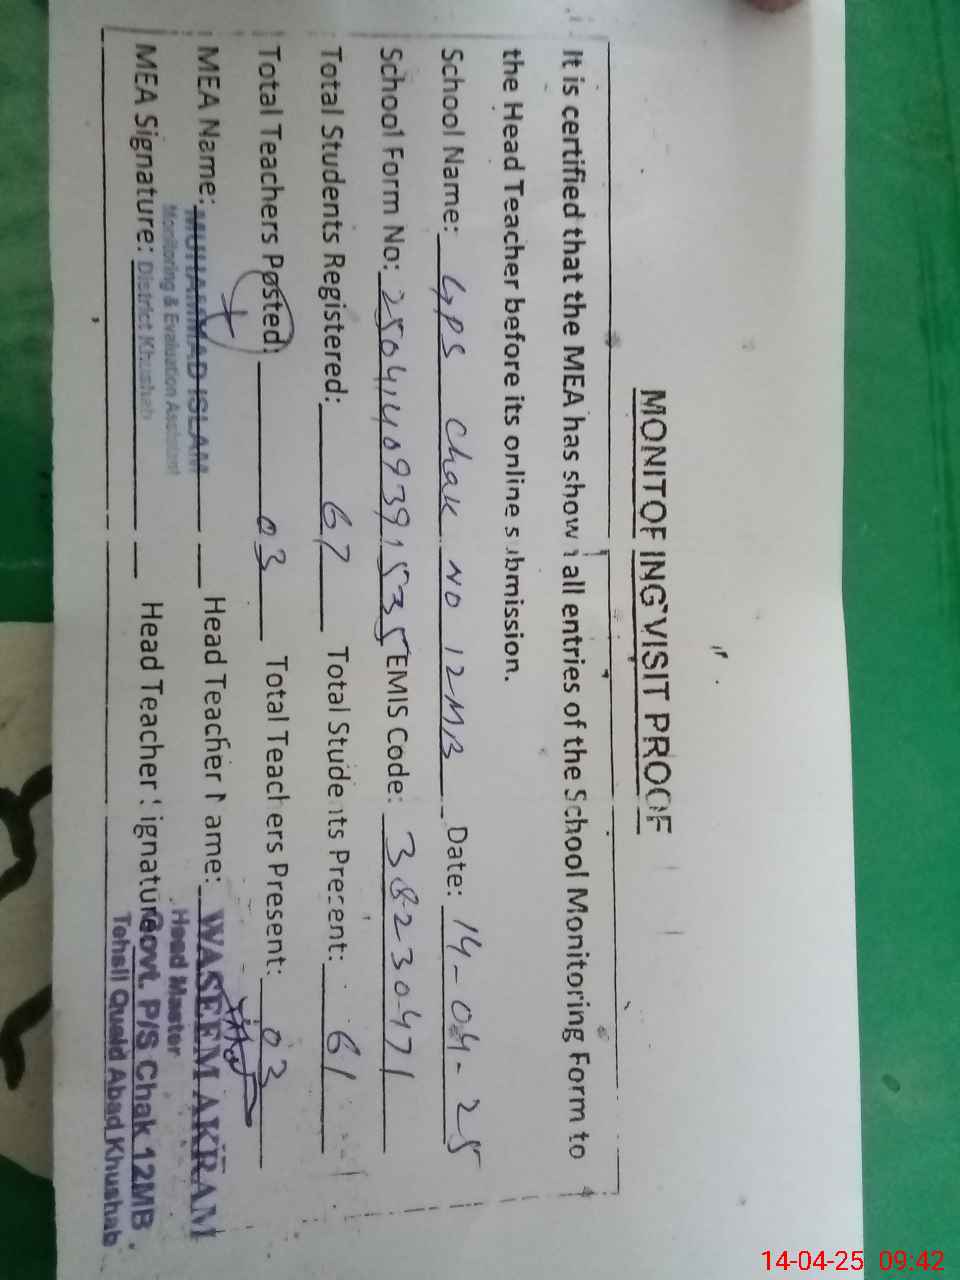 MONITORING VISIT PROOF
It is certified that the MEA has shown all entries of the School Monitoring Form to
the Head Teacher before its online submission.
School Name: GPS Chak NO 12MB Date: 14-04-25
School Form No: 25041409391535 EMIS Code: 38230471
Total Students Registered: 67 Total Students Present: 61
Total Teachers Posted: 03 Total Teachers Present: 03
MEA Name: MUHAMMAD ISLAM Head Teacher Name: WASEEM AKRAM
Monitoring & Evaluation Assistant Head Master
MEA Signature: District Khushab Head Teacher Signature Govt. P/S Chak 12MB
Tehsil Quaid Abad Khushab
14-04-25 09:42